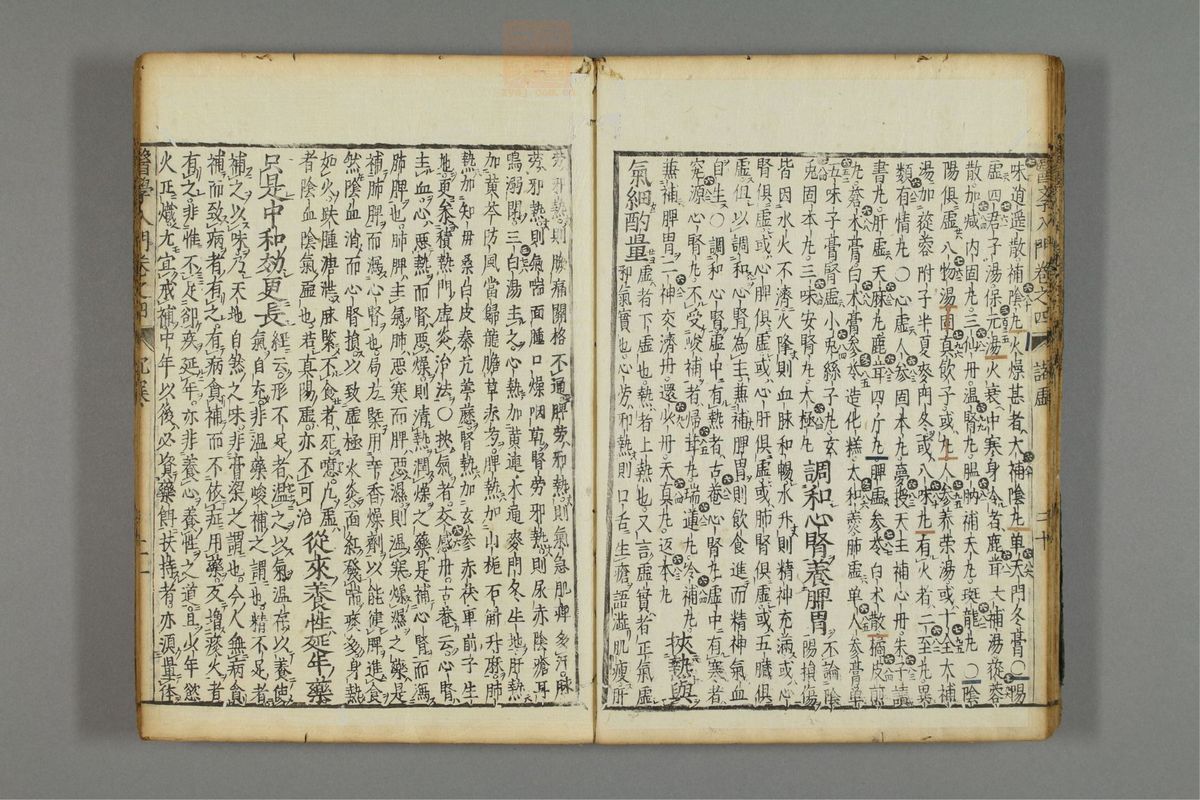 味逍遥散補陰丸火燥甚者大補陰丸单天門冬膏〇陽
虛四君子湯保元湯火衰中寒身冷者鹿茸大補湯蓯蓉
散加減内固丸三仙丹温腎丸膃肭補天丸斑龍丸〇陰
陽俱虛八物湯固真飲子或丸人参養荣湯或十全大補
湯加蓯蓉附子半夏麥門冬或八味丸有火者二至丸異
類有情丸〇心虛人参固本丸夢授天王補心丹朱子讀
書丸肝虛天麻丸鹿茸四斤丸脾虛参苓白术散橘皮煎
丸蒼术膏白术膏参苓造化糕太和羹肺虛单人参膏单
五味子膏腎虛小兎絲子丸玄
兔固本丸三味安腎丸太極丸
調和心腎養脾胃
不論陰
陽損傷
皆因水火不濟火降則血脉和暢水升則精神充滿或心
腎俱虛或心脾俱虛或心肝俱虛或肺腎俱虛或五臓俱
虛但以調和心腎為主兼補脾胃則飲食進而精神氣血
自生〇調和心腎虛中有熱者古菴心腎丸虛中有寒者
究源心腎丸不受峻補者歸茸丸瑞蓮丸冷補丸
兼補脾胃二神交濟丹還少丹天真丸返本丸
挾熱與
氣細酌量
虛者下虛也熱者上熱也又言虛實者正氣虛
邪氣實也心勞邪熱則口舌生瘡語澁肌瘦肝
勞邪熱則胸痛關格不通脾勞邪熱則氣急肌痺多汗肺
勞邪熱則氣喘面腫口燥咽乾腎勞邪熱則尿赤陰瘡耳
鳴溺閉三白湯主之心熱加黄連木通麥門冬生地肝熱
加黄芩防風當歸龍膽草赤芍脾熱加山梔石斛升麻肺
熱加知母桑白皮秦艽葶藶腎熱加玄参赤茯車前子生
地更参積熱門虛炎治法〇挾氣者交感丹古菴云心腎
主血心惡熱而腎惡燥則清熱潤燥之藥是補心腎而酒
肺脾也肺脾主氣肺惡寒而脾惡濕則温寒燥濕之藥是
補肺脾而漏心腎也局方槩用辛香燥劑以能健脾進食
然陰血消而心腎損以致虛極火炎面紅發喘痰多身熱
如火跌腫溏泄脉緊不食者死噫凡虛
者陰血陰氣虛也若真陽虛亦不可治
從來養性延年藥
只是中和効更長
經云形不足者温之以氣温存以養使
氣自充非温藥峻補之謂也精不足者
補之以味乃天地自然之味非膏粱之謂也今人無病食
補而致病者有之有病食補而不依症用藥反增痰火者
有之非惟不足却疾延年亦非養心養性之道且少年慾
火正熾尤宜戒補中年以後必資藥餌扶持者亦須量体
醫學入門卷之四
諸虛
二十